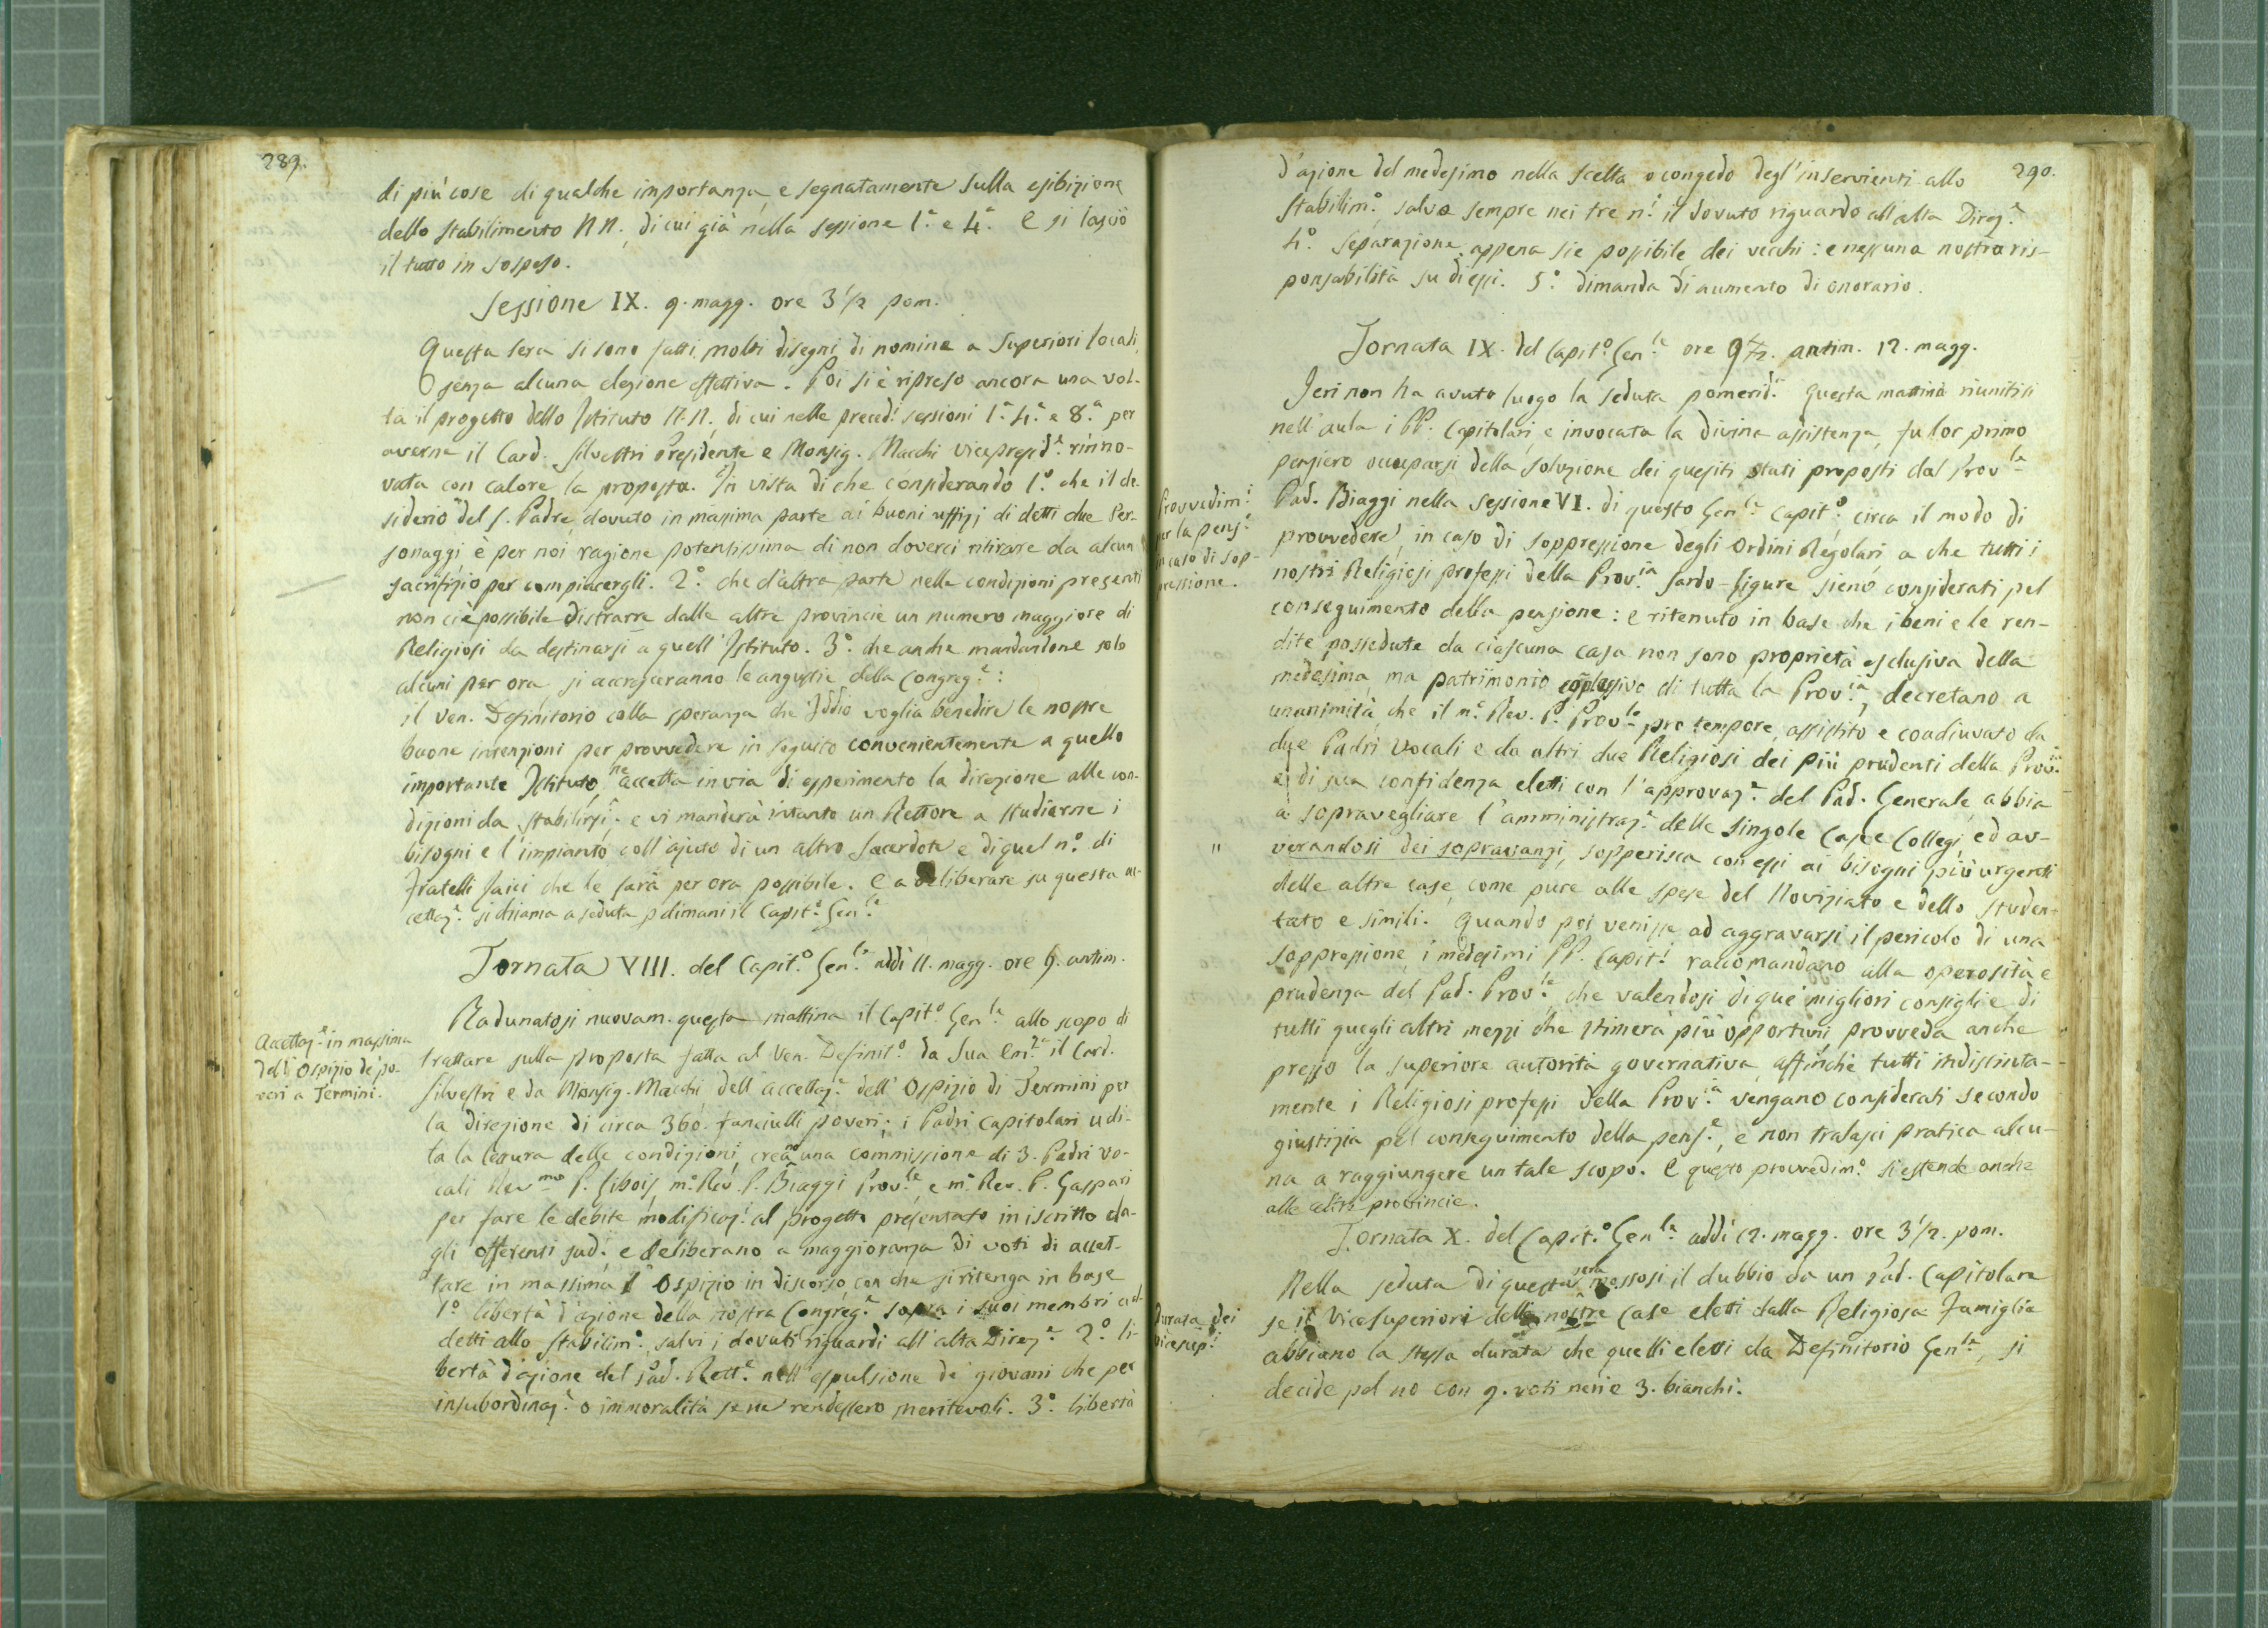 289.
di più cose di qualche importanza, e segnatamente sulla esibizione
dello stabilimento NN., di cui già nella sessione 1.ª e 4.ª E si lasciò
il tutto in sospeso.
Sessione IX. 9. magg. ore 3 1/2 pom.
Questa sera si sono fatti molti disegni di nomine a Superiori locali,
senza alcuna elezione effettiva. Poi si è ripreso ancora una vol-
ta il progetto dello Istituto N.N., di cui nelle preced.i sessioni 1.ª 4.ª e 8.ª per
averne il Card. Silvestri Presidente e Monsig. Macchi Vicepresid.e rinno-
vata con calore la proposta. In vista di che considerando 1.º che il de-
siderio del S. Padre, dovuto in massima parte ai buoni uffizj di detti due Per-
sonaggi è per noi ragione potentissima di non doverci ritirare da alcun
sacrifizio per compiacergli. 2.º che d'altra parte nelle condizioni presenti
non ci è possibile distrarre dalle altre provincie un numero maggiore di
Religiosi da destinarsi a quell'Istituto. 3.º che anche mandandone solo
alcuni per ora si accresceranno le angustie della Congreg.e:
il Ven. Definitorio colla speranza che Iddio voglia benedire le nostre
buone intenzioni per provvedere in seguito convenientemente a quello
importante Istituto, ne accetta in via di esperimento la direzione alle con-
dizioni da stabilirsi: e vi manderà intanto un Rettore a studiarne i
bisogni e l'impianto coll'ajuto di un altro Sacerdote e di quel n.º di
Fratelli laici che le sarà per ora possibile. E a deliberare su questa ac-
cettaz.e si chiama a seduta p dimani il Capit.º Gen.le
Tornata VIII. del Capit.º Gen.le addì 11. magg. ore 9. antim.
Accettaz.e in massima
dell'Ospizio de' po-
veri a Termini.
Radunatosi nuovam. questa mattina il Capit.º Gen.le allo scopo di
trattare sulla proposta fatta al Ven. Definit.º da Sua Em.za il Card.
Silvestri e da Monsig. Macchi dell'accettaz.e dell'Ospizio di Termini per
la direzione di circa 360. fanciulli poveri; i Padri Capitolari udi-
ta la lettura delle condizioni, creano una commissione di 3. Padri vo-
cali Rev.mo P. Libois, m.º Rev. P. Biaggi Prov.le, e m.º Rev. P. Gaspari
per fare le debite modificaz.i al progetto presentato in iscritto da-
gli offerenti sud.i e deliberano a maggioranza di voti di accet-
tare in massima l'Ospizio in discorso, con che si ritenga in base
1.º libertà d'azione della nostra Congreg.e sopra i suoi membri ad-
detti allo stabilim.º, salvi i dovuti riguardi all'alta Direz.e 2.º li-
bertà d'azione del Pad. Rett.e nell'espulsione de' giovani che per
insubordinaz.e o immoralità se ne rendessero meritevoli. 3.º libertà
290.
d'azione del medesimo nella scelta o congedo degl'inservienti allo
Stabilim.º, salvo sempre nei tre n.i il dovuto riguardo all'alta Direz.e
4.º Separazione appena sie possibile dei vecchi: e nessuna nostra ris-
ponsabilità su di essi. 5.º dimanda di aumento di onorario.
Tornata IX. del Capit.º Gen.le ore 9 1/2. antim. 12. magg.
Jeri non ha avuto luogo la seduta pomerid.a Questa mattina riunitisi
nell'aula i PP. Capitolari e invocata la divina assistenza, fu lor primo
pensiero occuparsi della soluzione dei quesiti stati proposti dal Prov.le
Provvedim.i
per la pens.e
in caso di sop-
pressione.
Pad. Biaggi nella sessione VI. di questo Gen.le Capit.º circa il modo di
provvedere, in caso di soppressione degli Ordini Regolari, a che tutti i
nostri Religiosi professi della Prov.ia Sardo-Ligure sieno considerati pel
conseguimento della pensione: e ritenuto in base che i beni e le ren-
dite possedute da ciascuna casa non sono proprietà esclusiva della
medesima, ma patrimonio complessivo di tutta la Prov.ia, decretano a
unanimità, che il m.º Rev. P. Prov.le pro tempore, assistito e coadiuvato da
due Padri Vocali e da altri due Religiosi dei più prudenti della Prov.ia
e di sua confidenza eletti con l'approvaz.e del Pad. Generale, abbia
a sopravegliare l'amministraz.e delle singole Case e Collegi, ed av-
" verandosi dei sopravanzi, sopperisca con essi ai bisogni più urgenti
delle altre case, come pure alle spese del Noviziato e dello studen-
tato e simili. Quando poi venisse ad aggravarsi il pericolo di una
soppressione, i medesimi PP. Capit.i raccomandano alla operosità e
prudenza del Pad. Prov.le, che valendosi di que' migliori consigli e di
tutti quegli altri mezzi che stimerà più opportuni, provveda anche
presso la superiore autorità governativa, affinchè tutti indistinta-
mente i Religiosi professi della Prov.ia vengano considerati secondo
giustizia pel conseguimento della pens.e, e non tralasci pratica alcu-
na a raggiungere un tale scopo. E questo provvedim.º si estende anche
alle altre provincie.
Tornata X. del Capit.º Gen.le addì 12. magg. ore 3 1/2. pom.
Durata dei
Vicesup.i
Nella seduta di questa sera mossosi il dubbio da un Pad. Capitolare
se i Vicesuperiori delle nostre case eletti dalla Religiosa Famiglia
abbiano la stessa durata che quelli eletti da Definitorio Gen.le, si
decide pel no con 9. voti neri e 3. bianchi.